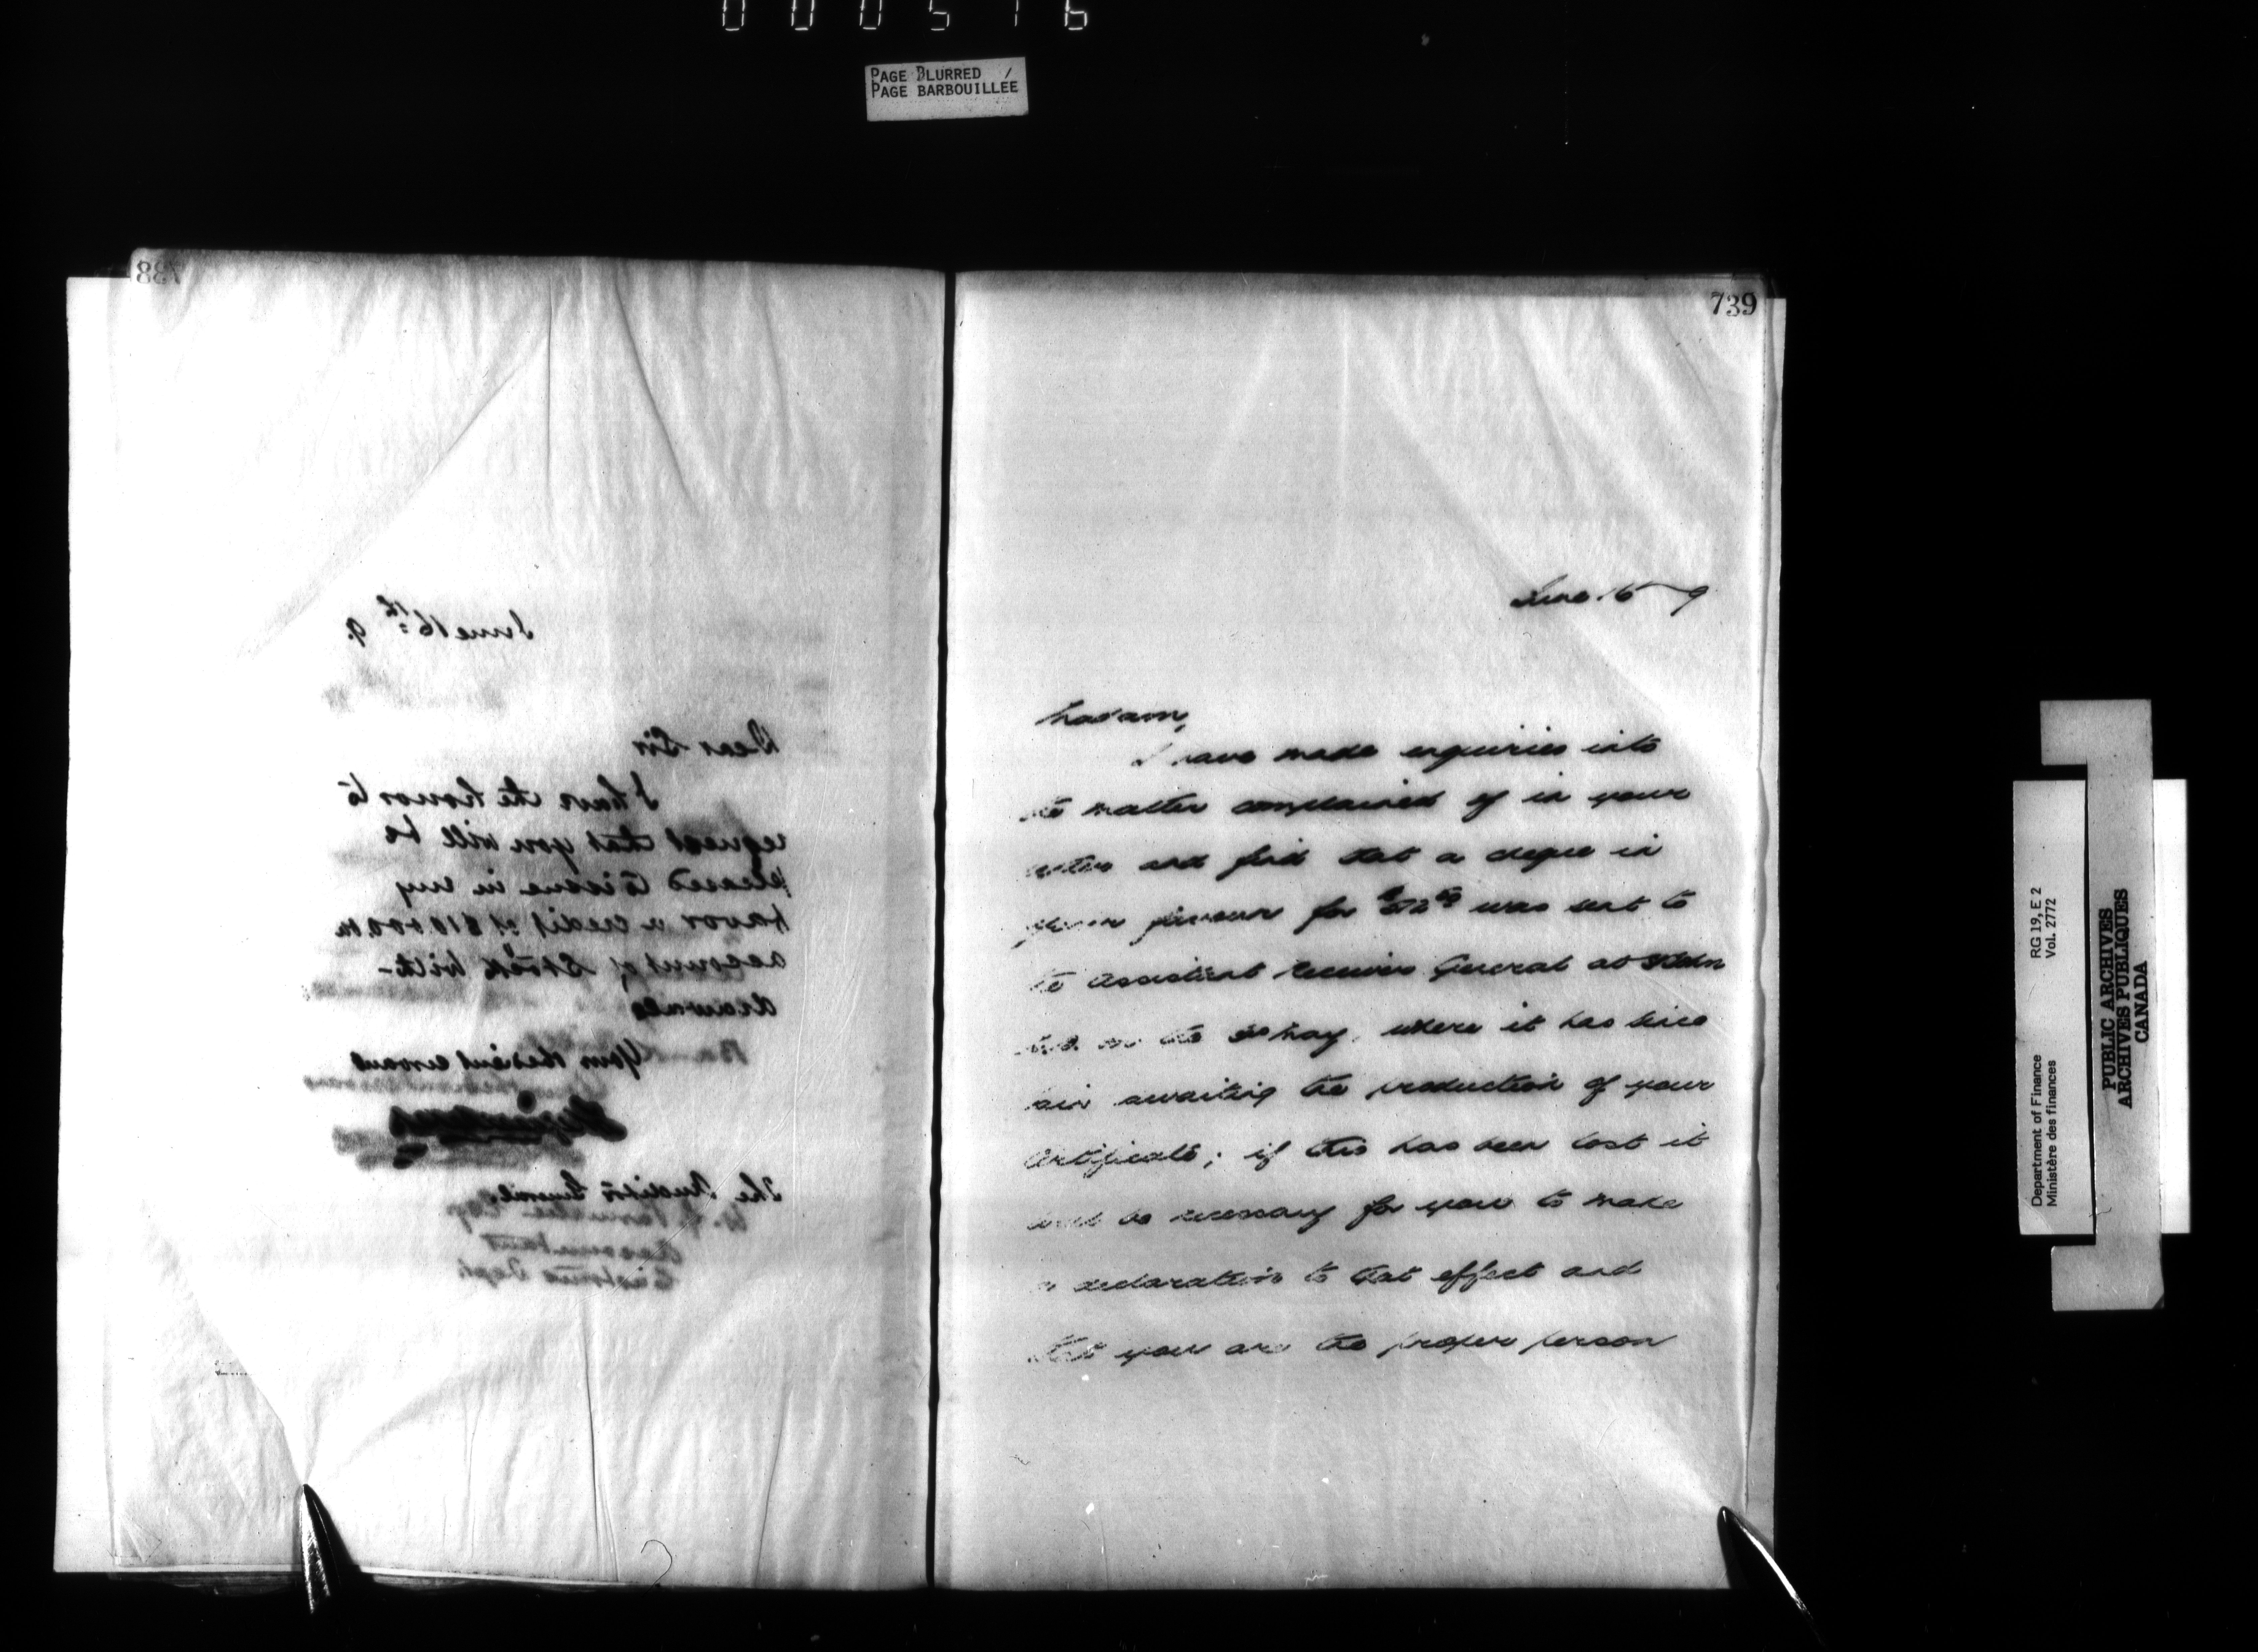 000516
PAGE BLURRED
PAGE BARBOUILLÉE
738
June 16th 9.
Dear Sir
I have the honor to
request that you will be
pleased to issue in my
favor a credit of $10.000. on
account of Stock With-
drawals
Your obedient servant
The Auditor General
Accountant
Customs Dept.
739
June 16 9
Madam,
I have made enquiries into
the matter complained of in your
letter and find that a cheque in
your favour for was sent to
the Assistant Receiver General at
on the May, where it has since
lain awaiting the production of your
Certificate; if this has been lost it
will be necessary for you to make
a declaration to that effect and
that you are the proper person
Department of Finance RG 19, E 2
Ministère des finances Vol. 2772
PUBLIC ARCHIVES
ARCHIVES PUBLIQUES
CANADA